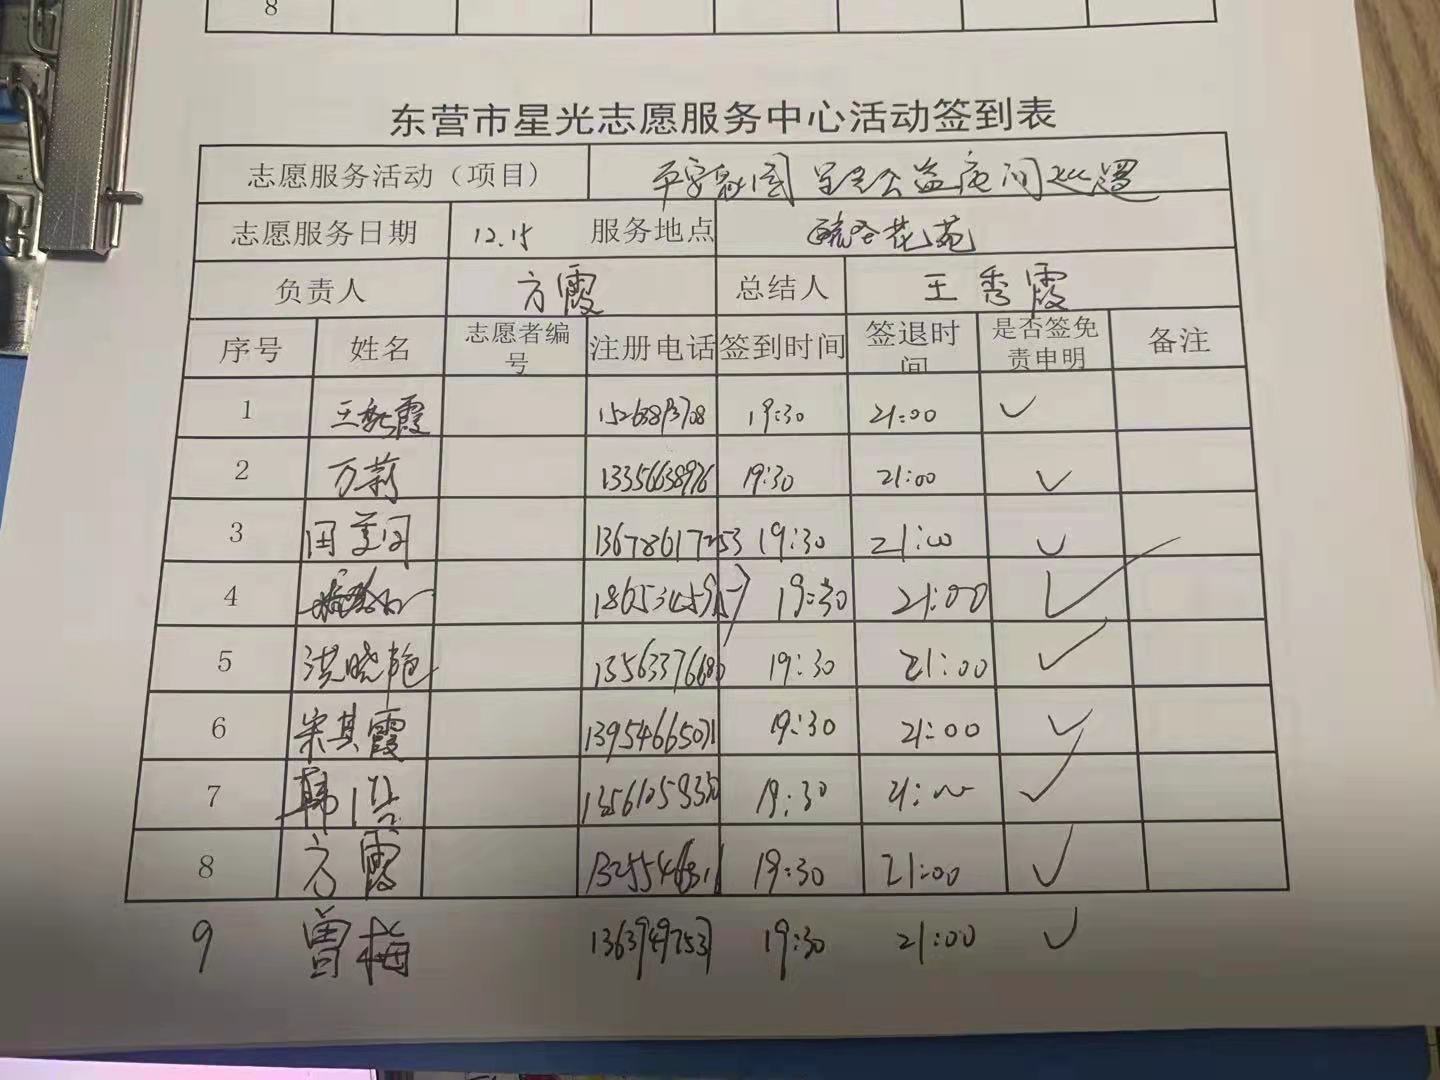 8
东营市星光志愿服务中心活动签到表
志愿服务活动（项目） 平安家园 星光公益夜间巡逻
志愿服务日期 12.15 服务地点 花苑
负责人 方霞 总结人 王秀霞
序号 姓名 志愿者编号 注册电话 签到时间 签退时间 是否签免责申明 备注
1 王 霞 19:30 21:00 ✓
2 万莉 13356638976 19:30 21:00 ✓
3 13678617253 19:30 21:00 ✓
4 19:30 21:00 ✓
5 洪晓艳 13563376680 19:30 21:00 ✓
6 宋其霞 13954665071 19:30 21:00 ✓
7 韩浩 19:30 21:00 ✓
8 方霞 19:30 21:00 ✓
9 曾梅 19:30 21:00 ✓